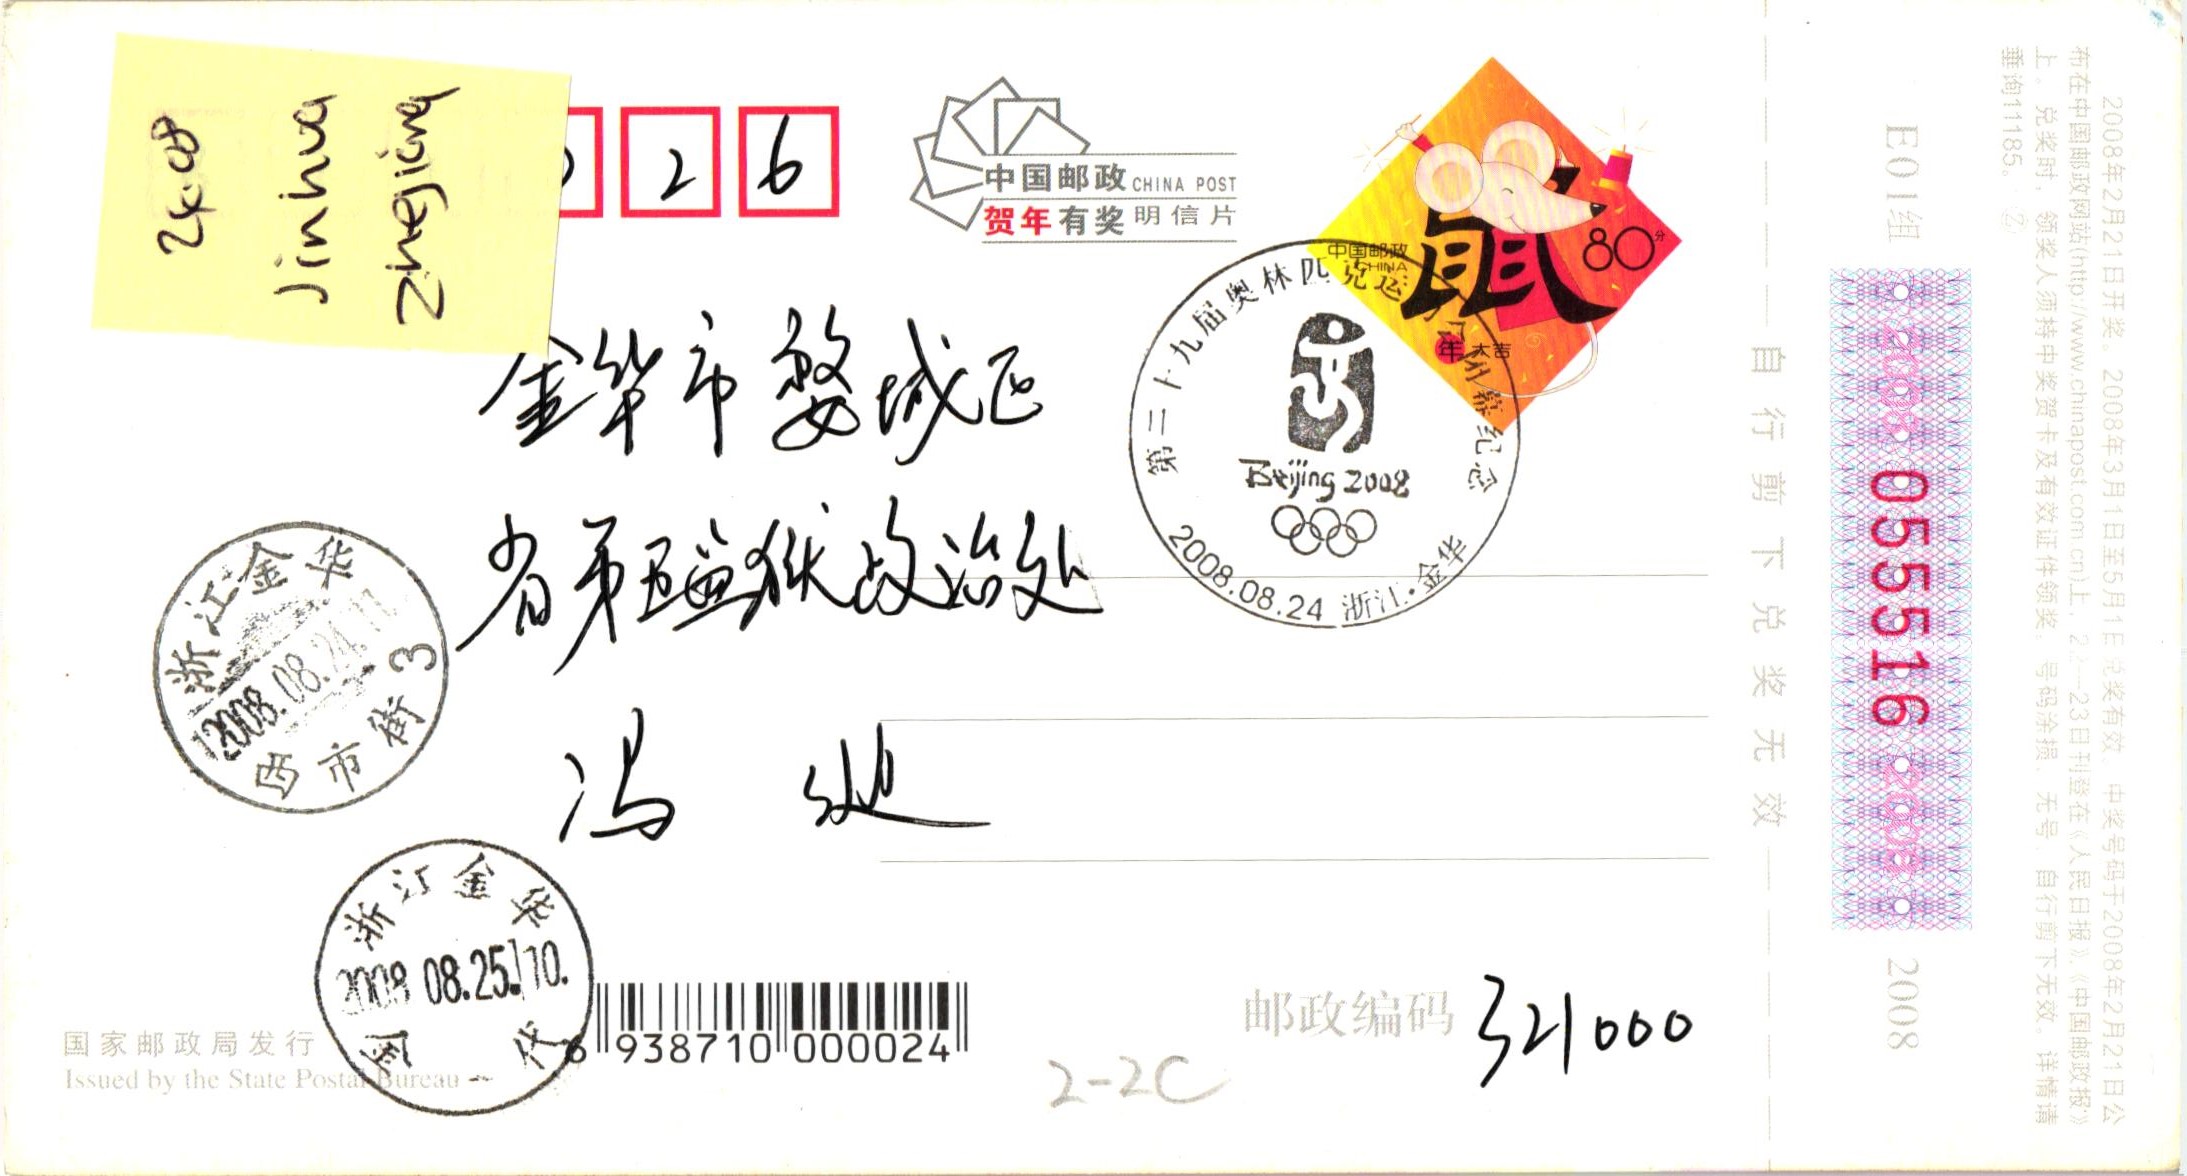 2408
Jinhua
Zhejiang
2 6
中国邮政 CHINA POST
贺年有奖 明信片
中国邮政
CHINA
鼠
80分
年大吉
第二十九届奥林匹克运
幕纪念
Beijing 2008
2008.08.24 浙江·金华
金华市婺城区
省第五监狱政治处
冯 处
浙江金华
2008.08.24.
西市街 3
浙江金华
2008 08.25. 10.
金 华
国家邮政局发行
Issued by the State Postal Bureau
6 938710 000024
2-2C
邮政编码 321000
自行剪下兑奖无效
E01组
2008 0555516 2008
2008
2008年2月21日开奖。2008年3月1日至5月1日兑奖有效。中奖号码于2008年2月21日公
布在中国邮政网站(http://www.chinapost.com.cn)上,22—23日刊登在《人民日报》、《中国邮政报》
上。兑奖时,领奖人须持中奖贺卡及有效证件领奖。号码涂损、无号、自行剪下无效。详情请
垂询11185。②